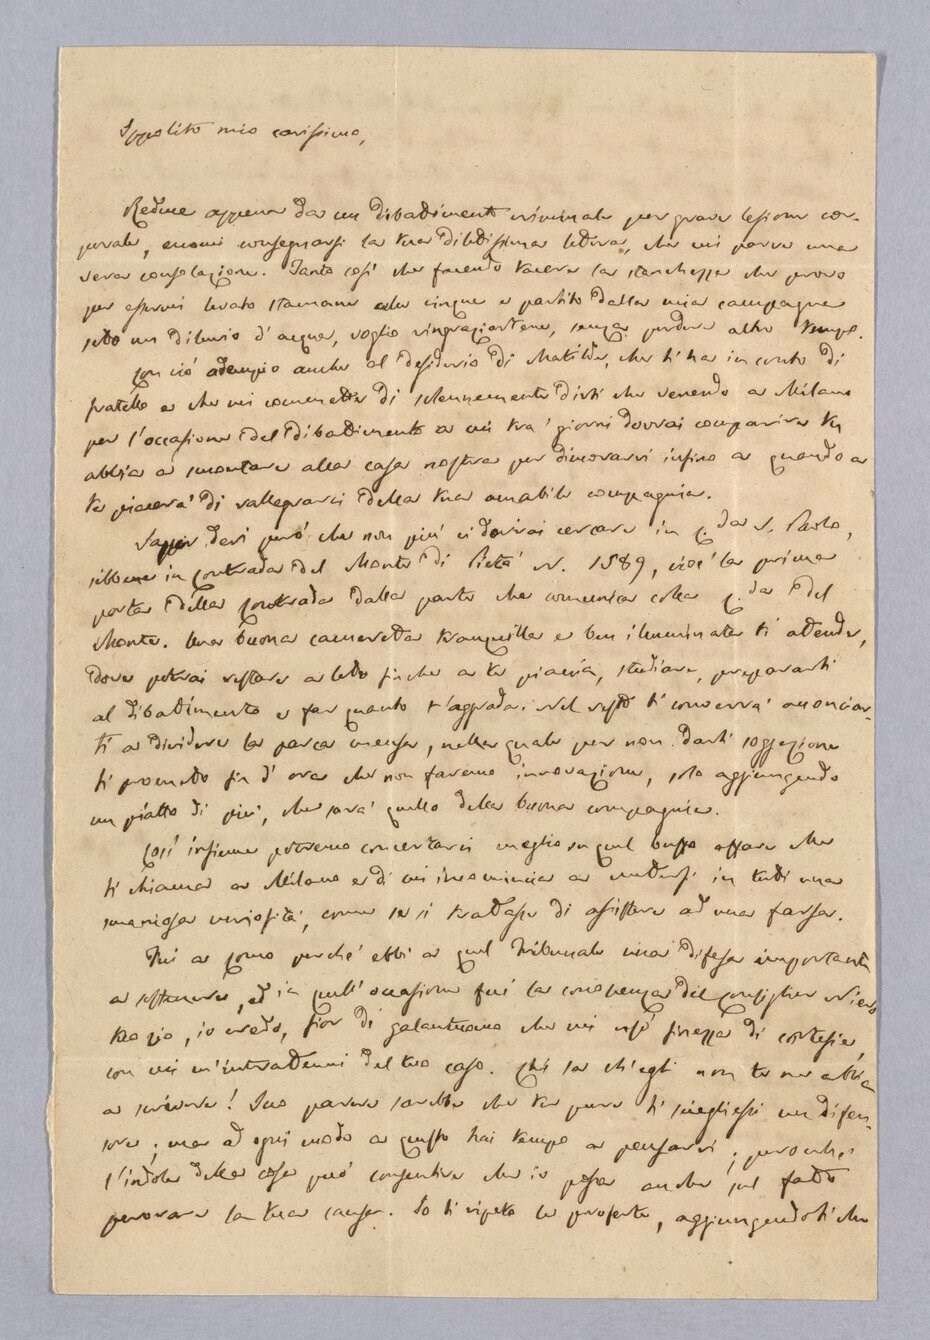 Ippolito mio carissimo,
Reduce appena da un dibattimento criminale per grave lesione cor-
porale, eccomi consegnarsi la tua dilettissima lettera, che mi parve una
vera consolazione. Tanto così che facendo tacere la stanchezza che provo
per essermi levato stamane alle cinque e partito dalla mia campagna
sotto un diluvio d'acqua, voglio ringraziartene, senza perdere altro tempo.
Con ciò adempio anche al desiderio di Matilde, che ti ha in conto di
fratello e che mi commette di solennemente dirti che venendo a Milano
per l'occasione del dibattimento a cui tra' giorni dovrai comparire tu
abbia a smontare alla casa nostra per dimorarvi infino a quando a
te piacerà di rallegrarci della tua amabile compagnia.
Saper devi però che non più ci dovrai cercare in C.da S. Paolo,
sibbene in Contrada del Monte di Pietà N. 1589, cioè la prima
porta della Contrada dalla parte che comunica colla C.da del
Monte. Una buona cameretta tranquilla e ben illuminata ti attende,
dove potrai restare a letto finche a te piaccia, studiare, prepararti
al dibattimento e far quanto t'aggrada. Nel resto ti converrà acconciar-
ti a dividere la parca mensa, nella quale per non darti soggezione
ti prometto fin d'ora che non faremo innovazione, solo aggiungendo
un piatto di più, che sarà quello della buona compagnia.
Così insieme potremo concertarci meglio su quel buffo affare che
ti chiama a Milano e di cui incomincia a mettersi in tutti una
smaniosa curiosità, come se si trattasse di assistere ad una farsa.
Fui a Como perché ebbi a quel Tribunale una difesa importante
a sostenere, ed in quell'occasione feci la conoscenza del Consigliere
io credo, fior di galantuomo che mi usò finezza di cortesie,
con cui m'intrattenni del tuo caso. Chi sa ch'egli non te ne abbia
a scrivere! Suo parere sarebbe che tu pure ti scegliessi un difen-
sore; ma ad ogni modo a questo hai tempo a pensarvi; perocchè
l'indole della cosa può consentire che io possa anche sul fatto
perorare la tua causa. Io ti ripeto le proferte, aggiungendoti che